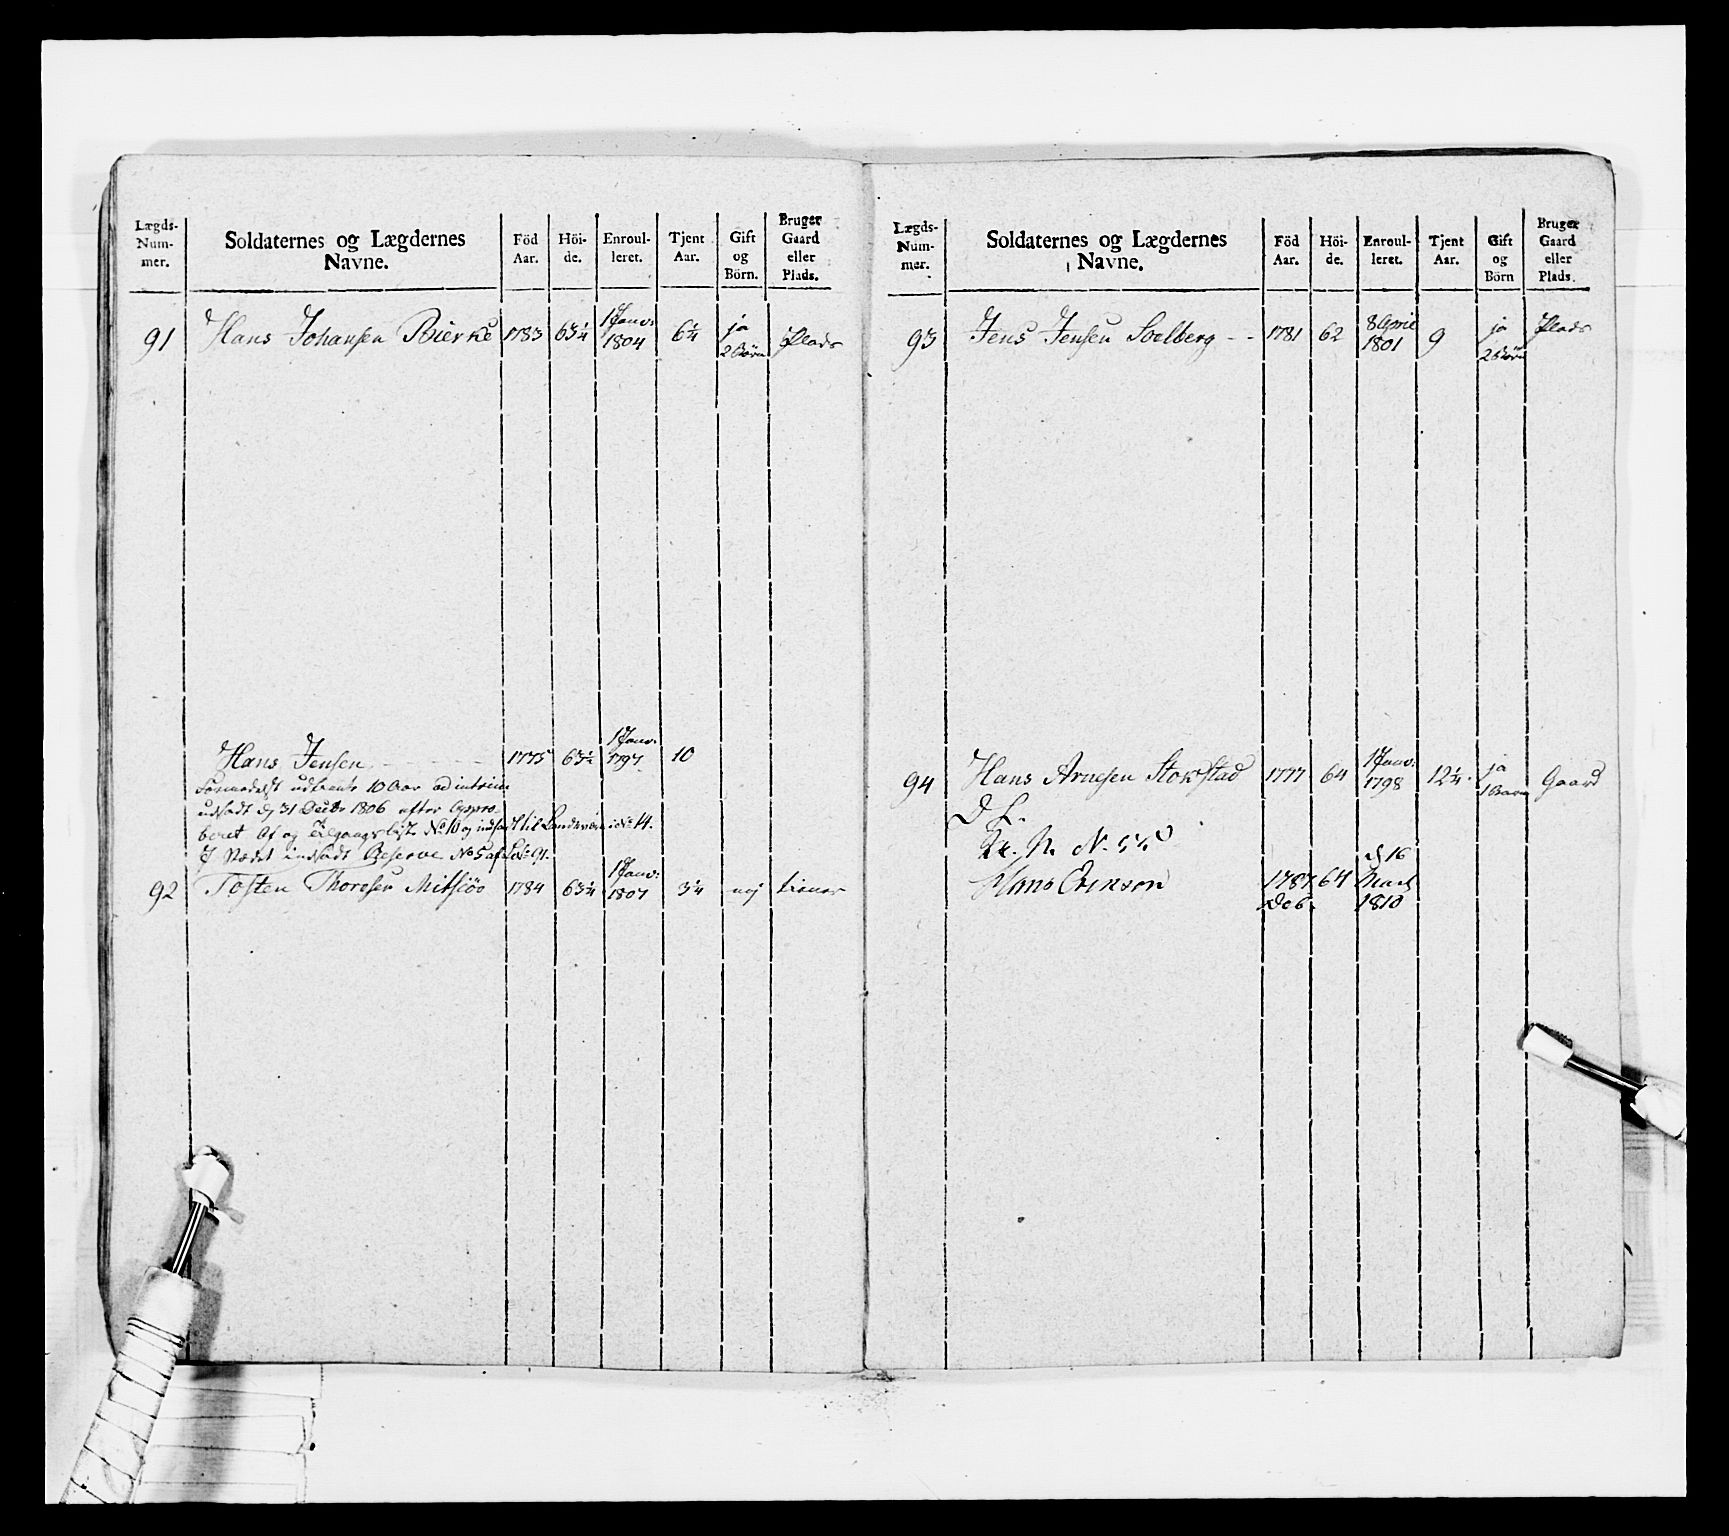 Lægds-Num-mer. Soldaternes og Lægdernes Navne. Föd Aar. Höi-de. Enroul-leret. Tjent Aar. Gift og Börn. Bruger Gaard eller Plads.
91 Hans Johansen Bierke 1783 63¼ 1 Janv: 1804 6¼ ja 2 Börn Plads
Hans Jensen 1775 63½ 1 Janv: 1797 10
udtient 10 Aar ad intrim
udsadt d. 31 Decbr 1806 efter Appro-
beret Af og Tilgangs liste No 10 og indsadt til Landeværn No 14.
I Stedet indsadt Reserve No 5 af
92 Tosten Thoresen Mitsiöe 1784 63¼ 1 Janv: 1807 3¼ nej tiener
Lægds-Num-mer. Soldaternes og Lægdernes Navne. Föd Aar. Höi-de. Enroul-leret. Tjent Aar. Gift og Börn Bruger Gaard eller Plads.
93 Jens Jensen Soelberg - - 1781 62 8 April 1801 9 ja 2 Börn Plads
94 Hans Arnesen Stokstad 1777 64 1 Janv: 1798 12¼ ja 1 Barn Gaard
D L.
Hans Erikson 1787 64 d 16 Marts 1810